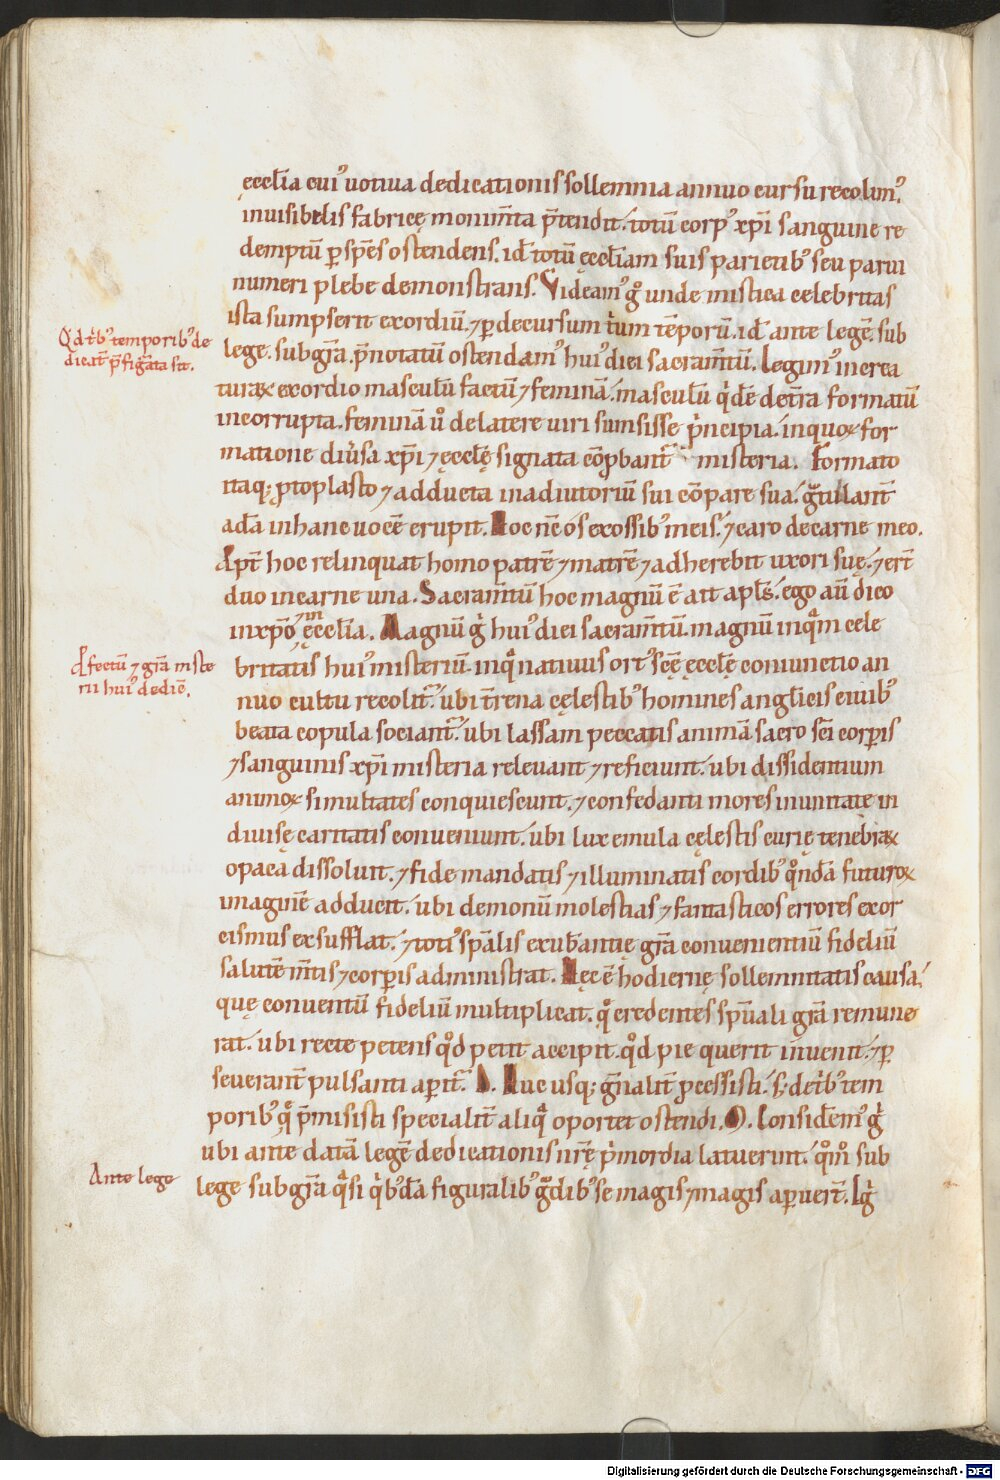 ęccłia cui᾽ uotiua dedicationis sollemnia annuo cursu recolim᾽.
inuisibilis fabricę monim̄ta p̄tendit. totū corp᾽ xp̄i sanguine re
demptū ꝑ spēs ostendens. id̄ totū ęccłiam suis parietib᾽ seu parui
numeri plebe demonstrans. Videam᾽ gͦ unde mistica celebritas
ista sumpserit exordiū. ⁊ ꝑ decursum t'um tēporū. id̄ ante legē. sub
Qd t'b᾽ temporib᾽ de
dicat̄ p̄figata sit.
lege. sub gr̄a. p̄notatū ostendam᾽ hui᾽ diei sacram̄tū. Legim᾽ in crea
turaꝝ exordio masculū factū ⁊ feminā. masculū q'dē de t̄ra formatū
incorrupta. feminā uͦ de latere uiri sumsisse p'ncipia. in quoꝝ for
matione diu'sa xp̄i ⁊ ęccłę signata cōꝓbant̄ misteria. Formato
itaq; ꝓtoplasto ⁊ adducta in adiutoriū sui cōpare sua. gͣtulant̄
adā in hanc uocē erupit. Hoc nc̄ os ex ossib᾽ meis. ⁊ caro de carne meo.
Ꝓpt̄ hoc relinquat homo patrē ⁊ matrē ⁊ adherebit uxori suę. ⁊ er̄t
duo in carne una. Sacram̄tū hoc magnū ē ait apłs. ego aū dico
in xp̄o ⁊ in ęccłia. Magnū g' hui᾽ diei sacram̄tū. magnū inqͣm cele
Effectū ⁊ gr̄a miste
rii hui᾽ dedic̄.
britatis hui᾽ misteriū. in qͣ natiuus ort᾽ scę̄ ęccłę coniunctio an
nuo cultu recolit̄. ubi t̄rena cęlestib᾽ homines angłicis ciuib᾽
beata copula sociant̄. ubi lassam peccatis animā sacro sc̄i corꝑis
⁊ sanguinis xp̄i misteria releuant ⁊ reficiunt. ubi dissidentium
animoꝝ simultates conquiescunt. ⁊ confedanti mores in unitate in
diuisę caritatis conueniunt. ubi lux emula cęlestis curię tenebraꝝ
opaca dissoluit. ⁊ fide mandatis ⁊ illuminatis cordib᾽ qͦndā futuroꝝ
imaginē adducit. ubi demonū molestias ⁊ fantasticos errores exor
cismus exsufflat. ⁊ toti᾽ spālis exubantię gr̄a conuenientiū fideliū
salutē m̄tis ⁊ corꝑis administrat. Hęc ē hodiernę sollemnitatis causa.
quę conuentū fideliū multiplicat. qͦ credentes spūali gr̄a remune
rat. ubi recte petens qͦd petit accipit. qͦd pie querit inuenit. ⁊ ꝑ
seuerant̄ pulsanti aꝑit̄. D. Huc usq; gn̄alit̄ ꝓcessisti. s; de t'b᾽ tem
porib᾽ qͣ p̄misisti specialit̄ aliqͣ oportet ostendi. M. Consid̄em᾽ g'
ubi ante datā legē dedicationis nr̄ę p'mordia latuerint. qͦm̊ sub
Ante lege
lege sub gr̄a qͣsi q'b᾽dā figuralib᾽ gͣdib᾽ se magis ⁊ magis aꝑuer̄t. Ig'
Digitalisierung gefördert durch die Deutsche Forschungsgemeinschaft - DFG